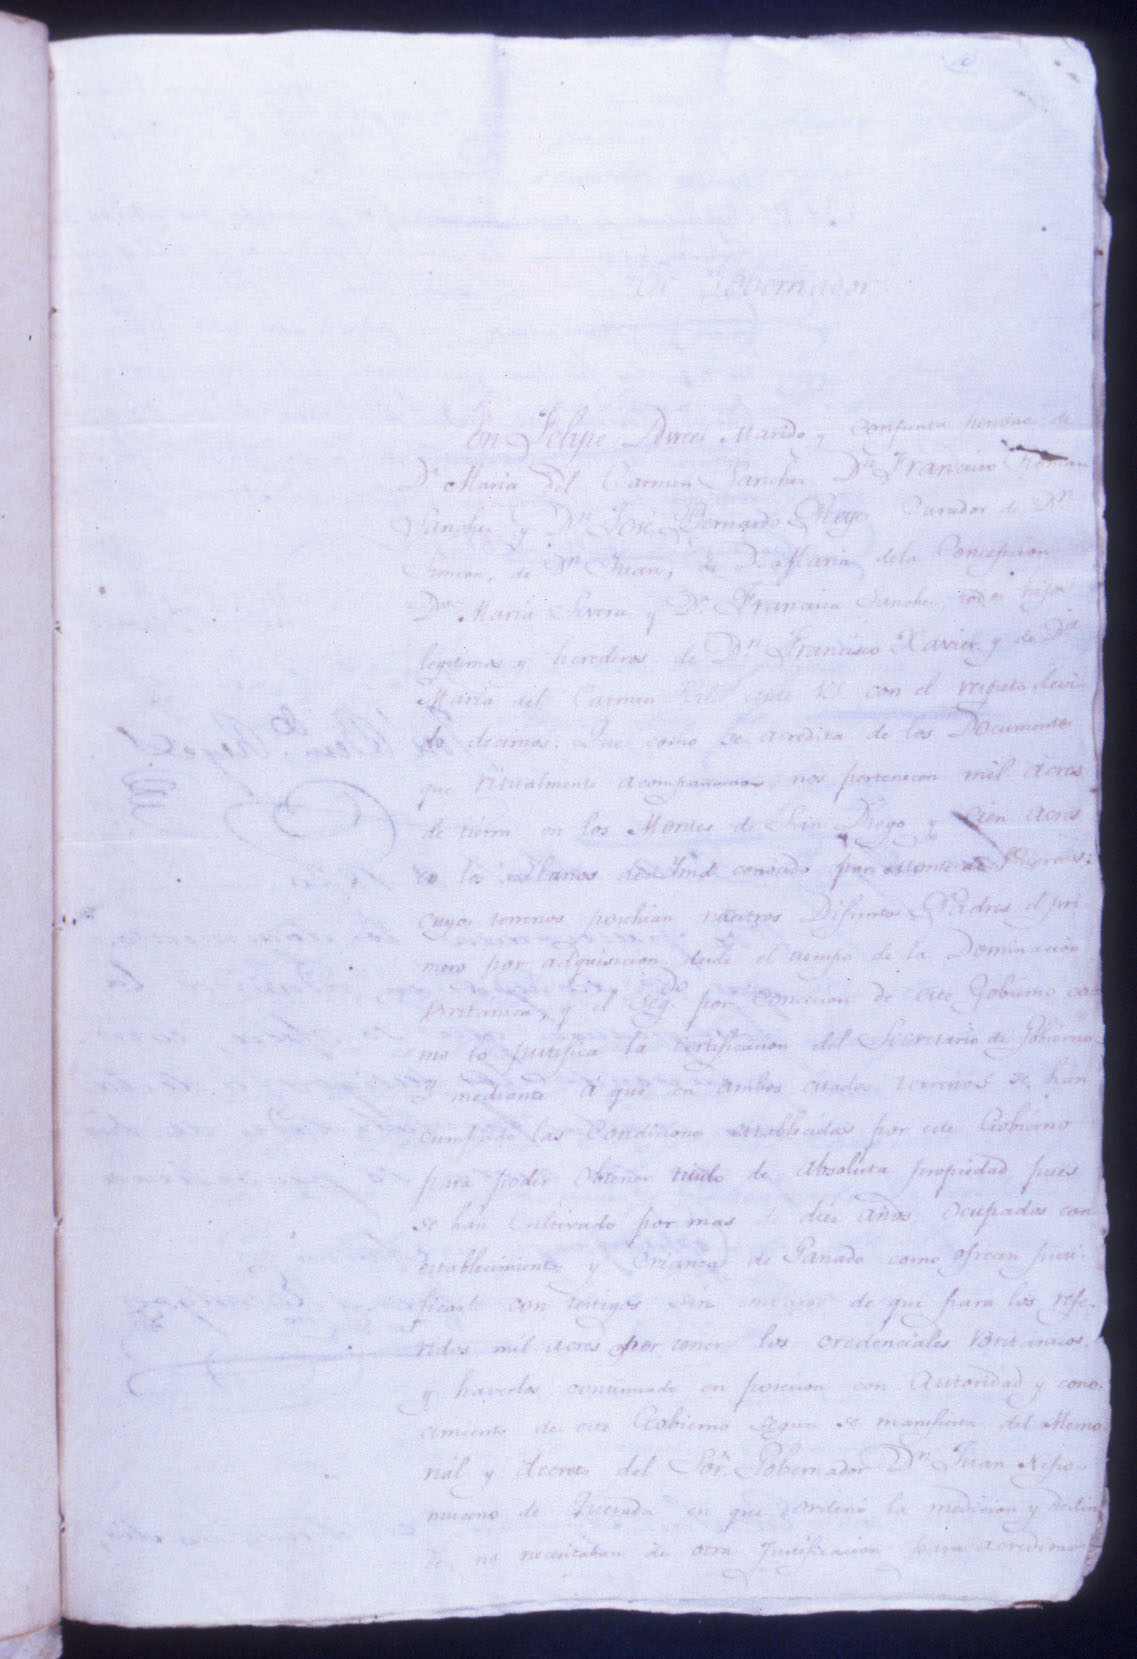 10
Sor. Gobernador
Dn. Felipe Marido y conjunta persona de
Da. Maria del Carmen Sanchez Dn. Francisco Roman
Sanchez y Dn. José Bernardo Reyes Curador de Dn.
Simeon, de Dn. Juan, de Da. Maria dela Concepcion
Da. Maria Severa y Da. Francisca Sanchez, todos hijos
legitimos y herederos de Dn. Francisco Xavier y de Da.
Maria del Carmen Hill ante VS con el respeto devi-
do decimos: Que como se acredita de los Documentos
que ritualmente acompañamos, nos pertenecen mil acres
de tierra en los Montes de San Diego y cien acres
en los Llanos del conocido por Monte de Puercos:
cuyos terrenos poschian nuestros Difuntos Padres el pri
mero por adquisicion desde el tiempo de la Dominacion
Britanica, y el segdo. por concesion de este Gobierno co=
mo lo justifica la certificacion del Secretario de Gobierno
y mediante á que en ambos citados terrenos se han
cumplido las Condiciones establecidas por este Gobierno
para poder obtener titulo de absoluta propiedad pues
se han Cultivado por mas de dies años, ocupados con
establecimiento y Crianza de Ganado como ofrecen justi-
ficarlo con testigos sin embargo de que para los refe-
ridos mil acres por tener los credenciales Britanicos,
y haverlos continuado en posecion con Autoridad y cono-
cimiento de este Gobierno segun se manifiesta del Memo
rial y decreto del Sor. Gobernador Dn. Juan Nepo-
muceno de Quesada en que ordenó la medicion y deslin
de, no necesitaban de otra justificacion para